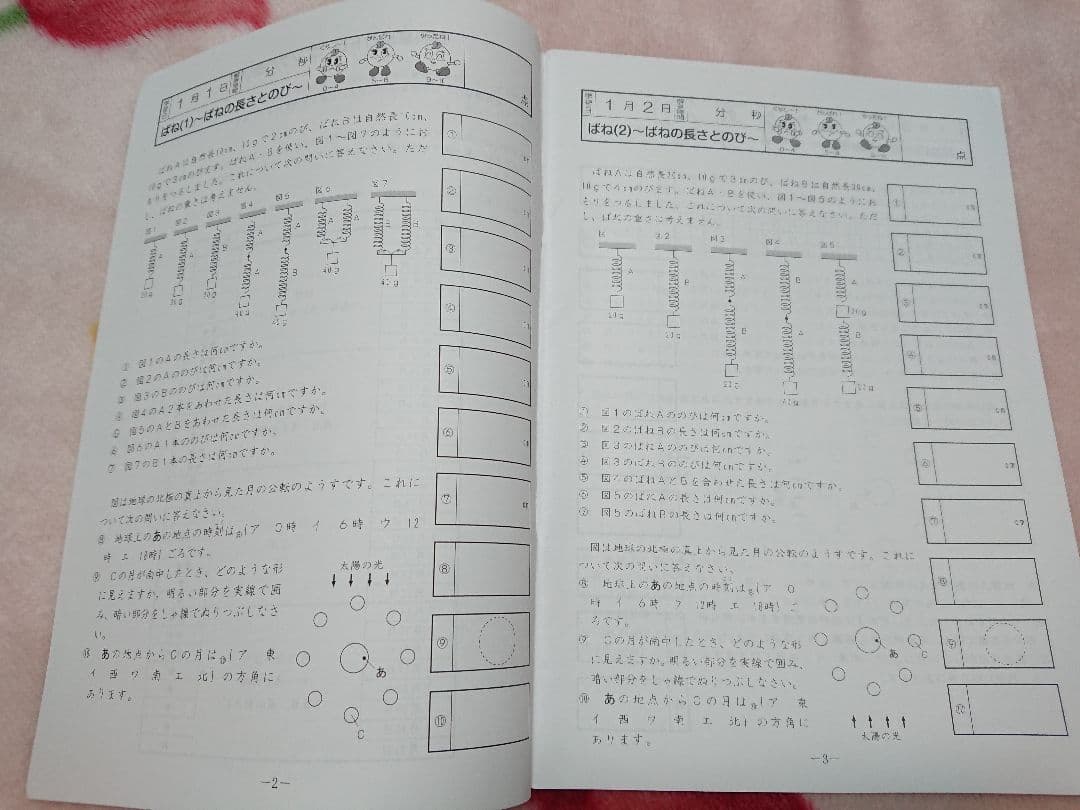 1月1日
分 秒
0～4
5～8
9～11
点
ばね(1)～ばねの長さとのび～
おもりをつるしました。これについて次の問いに答えなさい。ただ
し、ばねの重さは考えません。
図1 図2 図3 図4 図5 図6 図7
A A B A A B A A B B
40g 40g
① 図1のAの長さは何cmですか。
② 図2のAののびは何cmですか。
③ 図3のBののびは何cmですか。
④ 図4のA2本をあわせた長さは何cmですか。
⑤ 図5のAとBをあわせた長さは何cmですか。
⑥ 図6のA1本ののびは何cmですか。
⑦ 図7のB1本の長さは何cmですか。
図は地球の北極の真上から見た月の公転のようすです。これに
ついて次の問いに答えなさい。
⑧ 地球上のあの地点の時刻は
ア 0時 イ 6時 ウ 12
時 エ 18時 ごろです。
⑨ Cの月が南中したとき、どのような形
に見えますか。明るい部分を実線で囲
み、暗い部分をしゃ線でぬりつぶしなさ
い。
⑩ あの地点からCの月は
ア 東
イ 西 ウ 南 エ 北
の方角に
あります。
太陽の光
あ
C
①
②
③
④
⑤
⑥
⑦
⑧
⑨
⑩
－2－
1月2日
分 秒
点
ばね(2)～ばねの長さとのび～
10gで4cmのびます。ばねA・Bを使い、図1～図5のようにお
もりをつるしました。これについて次の問いに答えなさい。ただ
し、ばねの重さは考えません。
図2 図3 図4 図5
A B A B B A A B
① 図1のばねAののびは何cmですか。
② 図2のばねBの長さは何cmですか。
③ 図3のばねAののびは何cmですか。
④ 図3のばねBののびは何cmですか。
⑤ 図4のばねAとBを合わせた長さは何cmですか。
⑥ 図5のばねAの長さは何cmですか。
⑦ 図5のばねBの長さは何cmですか。
図は地球の北極の真上から見た月の公転のようすです。これに
ついて次の問いに答えなさい。
⑧ 地球上のあの地点の時刻は
ア 0
時 イ 6時 ウ 12時 エ 18時
ご
ろです。
⑨ Cの月が南中したとき、どのような形
に見えますか。明るい部分を実線で囲み、
暗い部分をしゃ線でぬりつぶしなさい。
⑩ あの地点からCの月は
ア 東
イ 西 ウ 南 エ 北
の方角に
あります。
あ
C
太陽の光
①
②
③
④
⑤
⑥
⑦
⑧
⑨
⑩
－3－